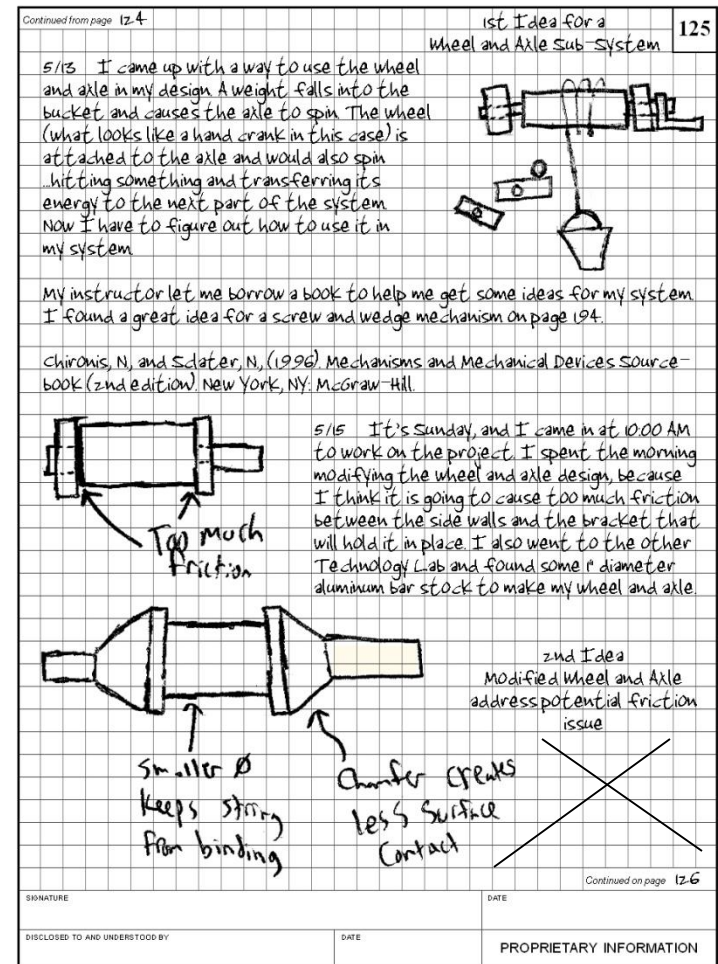 Continued from page 124
1st Idea for a
Wheel and Axle Sub-System
125
5/13 I came up with a way to use the wheel
and axle in my design. A weight falls into the
bucket and causes the axle to spin. The wheel
(what looks like a hand crank in this case) is
attached to the axle and would also spin
...hitting something and transferring its
energy to the next part of the system.
Now I have to figure out how to use it in
my system.
My instructor let me borrow a book to help me get some ideas for my system.
I found a great idea for a screw and wedge mechanism on page 194.
Chironis, N, and Sclater, N, (1996). Mechanisms and Mechanical Devices Source-
book (2nd edition). New York, NY: McGraw-Hill.
5/15 It's Sunday, and I came in at 10:00 AM
to work on the project. I spent the morning
modifying the wheel and axle design, because
I think it is going to cause too much friction
between the side walls and the bracket that
will hold it in place. I also went to the other
Technology Lab and found some 1" diameter
aluminum bar stock to make my wheel and axle.
Too Much
Friction
2nd Idea
Modified Wheel and Axle
address potential friction
issue
Smaller Ø
Keeps String
from binding
Chamfer Creates
less Surface
Contact
Continued on page 126
SIGNATURE
DATE
DISCLOSED TO AND UNDERSTOOD BY
DATE
PROPRIETARY INFORMATION